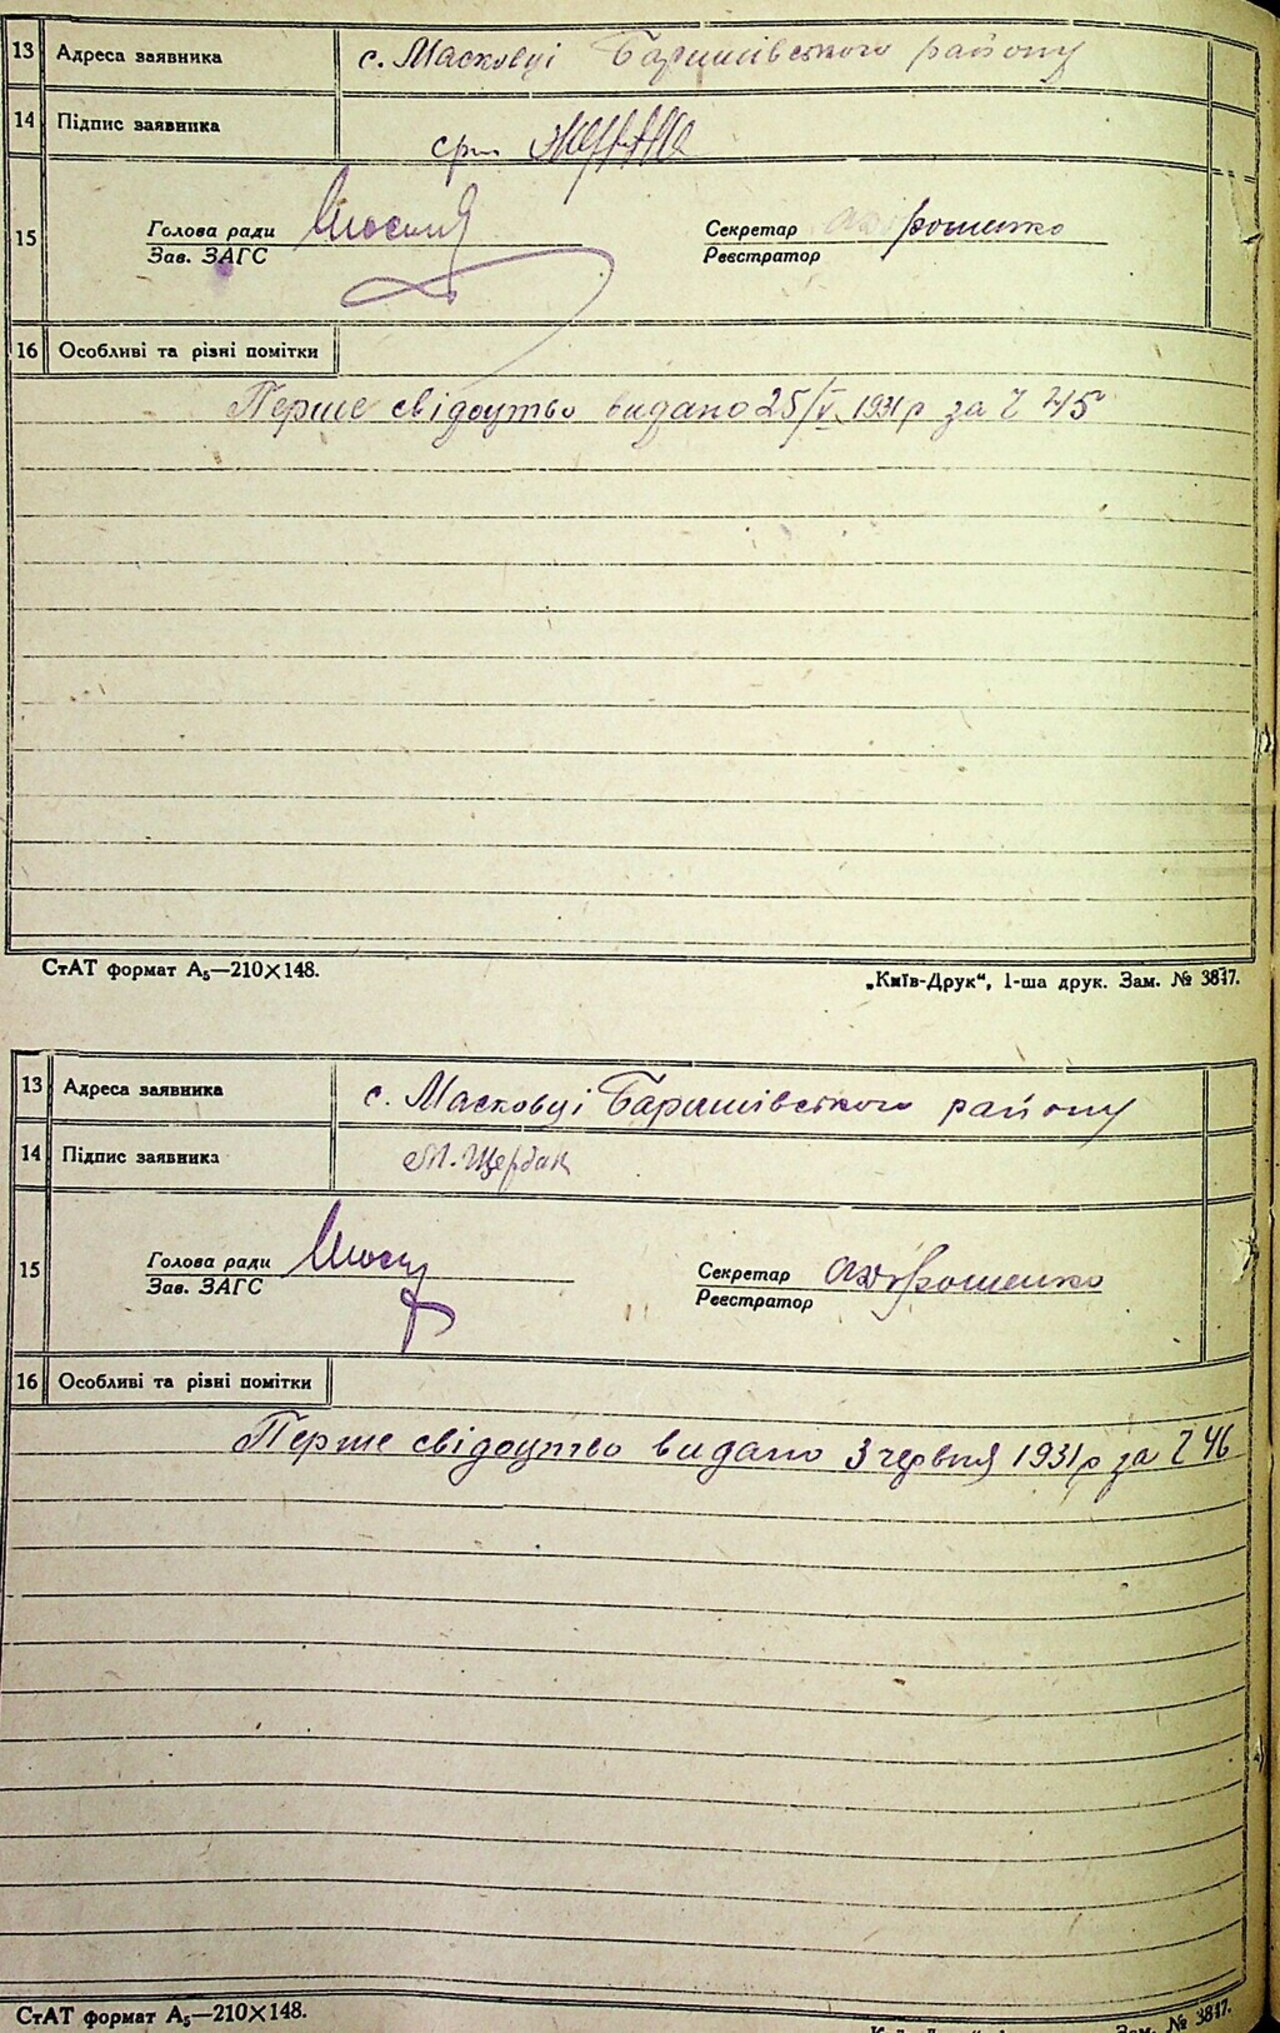 13 Адреса заявника с. Масковці Баришівського району
14 Підпис заявника
15 Голова ради Секретар Дорошенко
Зав. ЗАГС Реєстратор
16 Особливі та різні помітки
Перше свідоцтво видано 25/V 1931 р за Ч 45
СтАТ формат А₅—210×148. „Київ-Друк“, 1-ша друк. Зам. № 3817.
13 Адреса заявника с. Масковці Баришівського району
14 Підпис заявника М. Щербак
15 Голова ради Секретар Дорошенко
Зав. ЗАГС Реєстратор
16 Особливі та різні помітки
Перше свідоцтво видано 3 червня 1931 р за Ч 46
СтАТ формат А₅—210×148. Зам. № 3817.